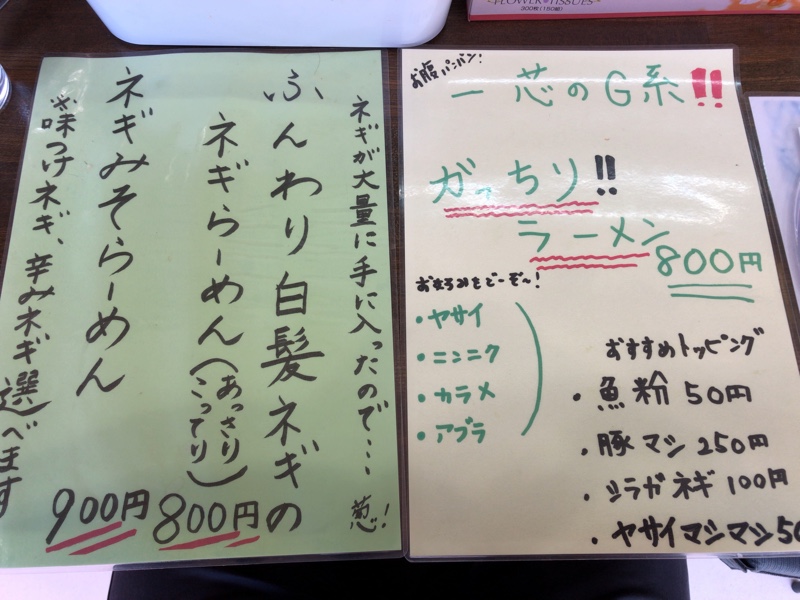 FLOWER TISSUES
300枚(150組)
ネギが大量に手に入ったので… 葱!
ふんわり白髪ネギの
ネギらーめん(あっさり こってり) 800円
ネギみそらーめん 900円
※味つけネギ、辛みネギ選べます
お腹パンパン!
一芯のG系!!
がっちり!!
ラーメン
800円
お好みをどーぞ〜!
・ヤサイ
・ニンニク
・カラメ
・アブラ
おすすめトッピング
・魚粉 50円
・豚マシ 250円
・シラガネギ 100円
・ヤサイマシマシ 50